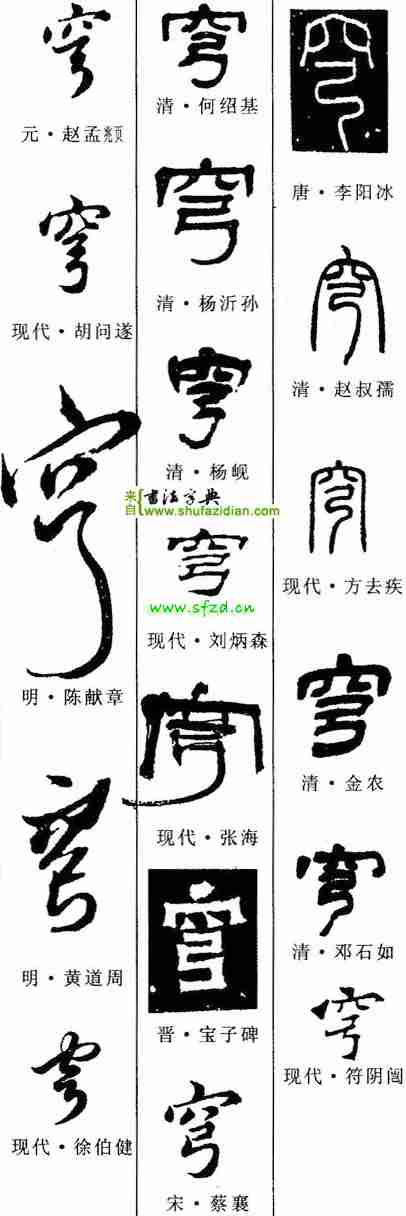 穹
唐·李阳冰
穹
清·赵叔孺
穹
现代·方去疾
穹
清·金农
穹
清·邓石如
穹
现代·符阴闿
穹
清·何绍基
穹
清·杨沂孙
穹
清·杨岘
来自 书法字典
www.shufazidian.com
穹
www.sfzd.cn
现代·刘炳森
穹
现代·张海
穹
晋·宝子碑
穹
宋·蔡襄
穹
元·赵孟頫
穹
现代·胡问遂
穹
明·陈献章
穹
明·黄道周
穹
现代·徐伯健